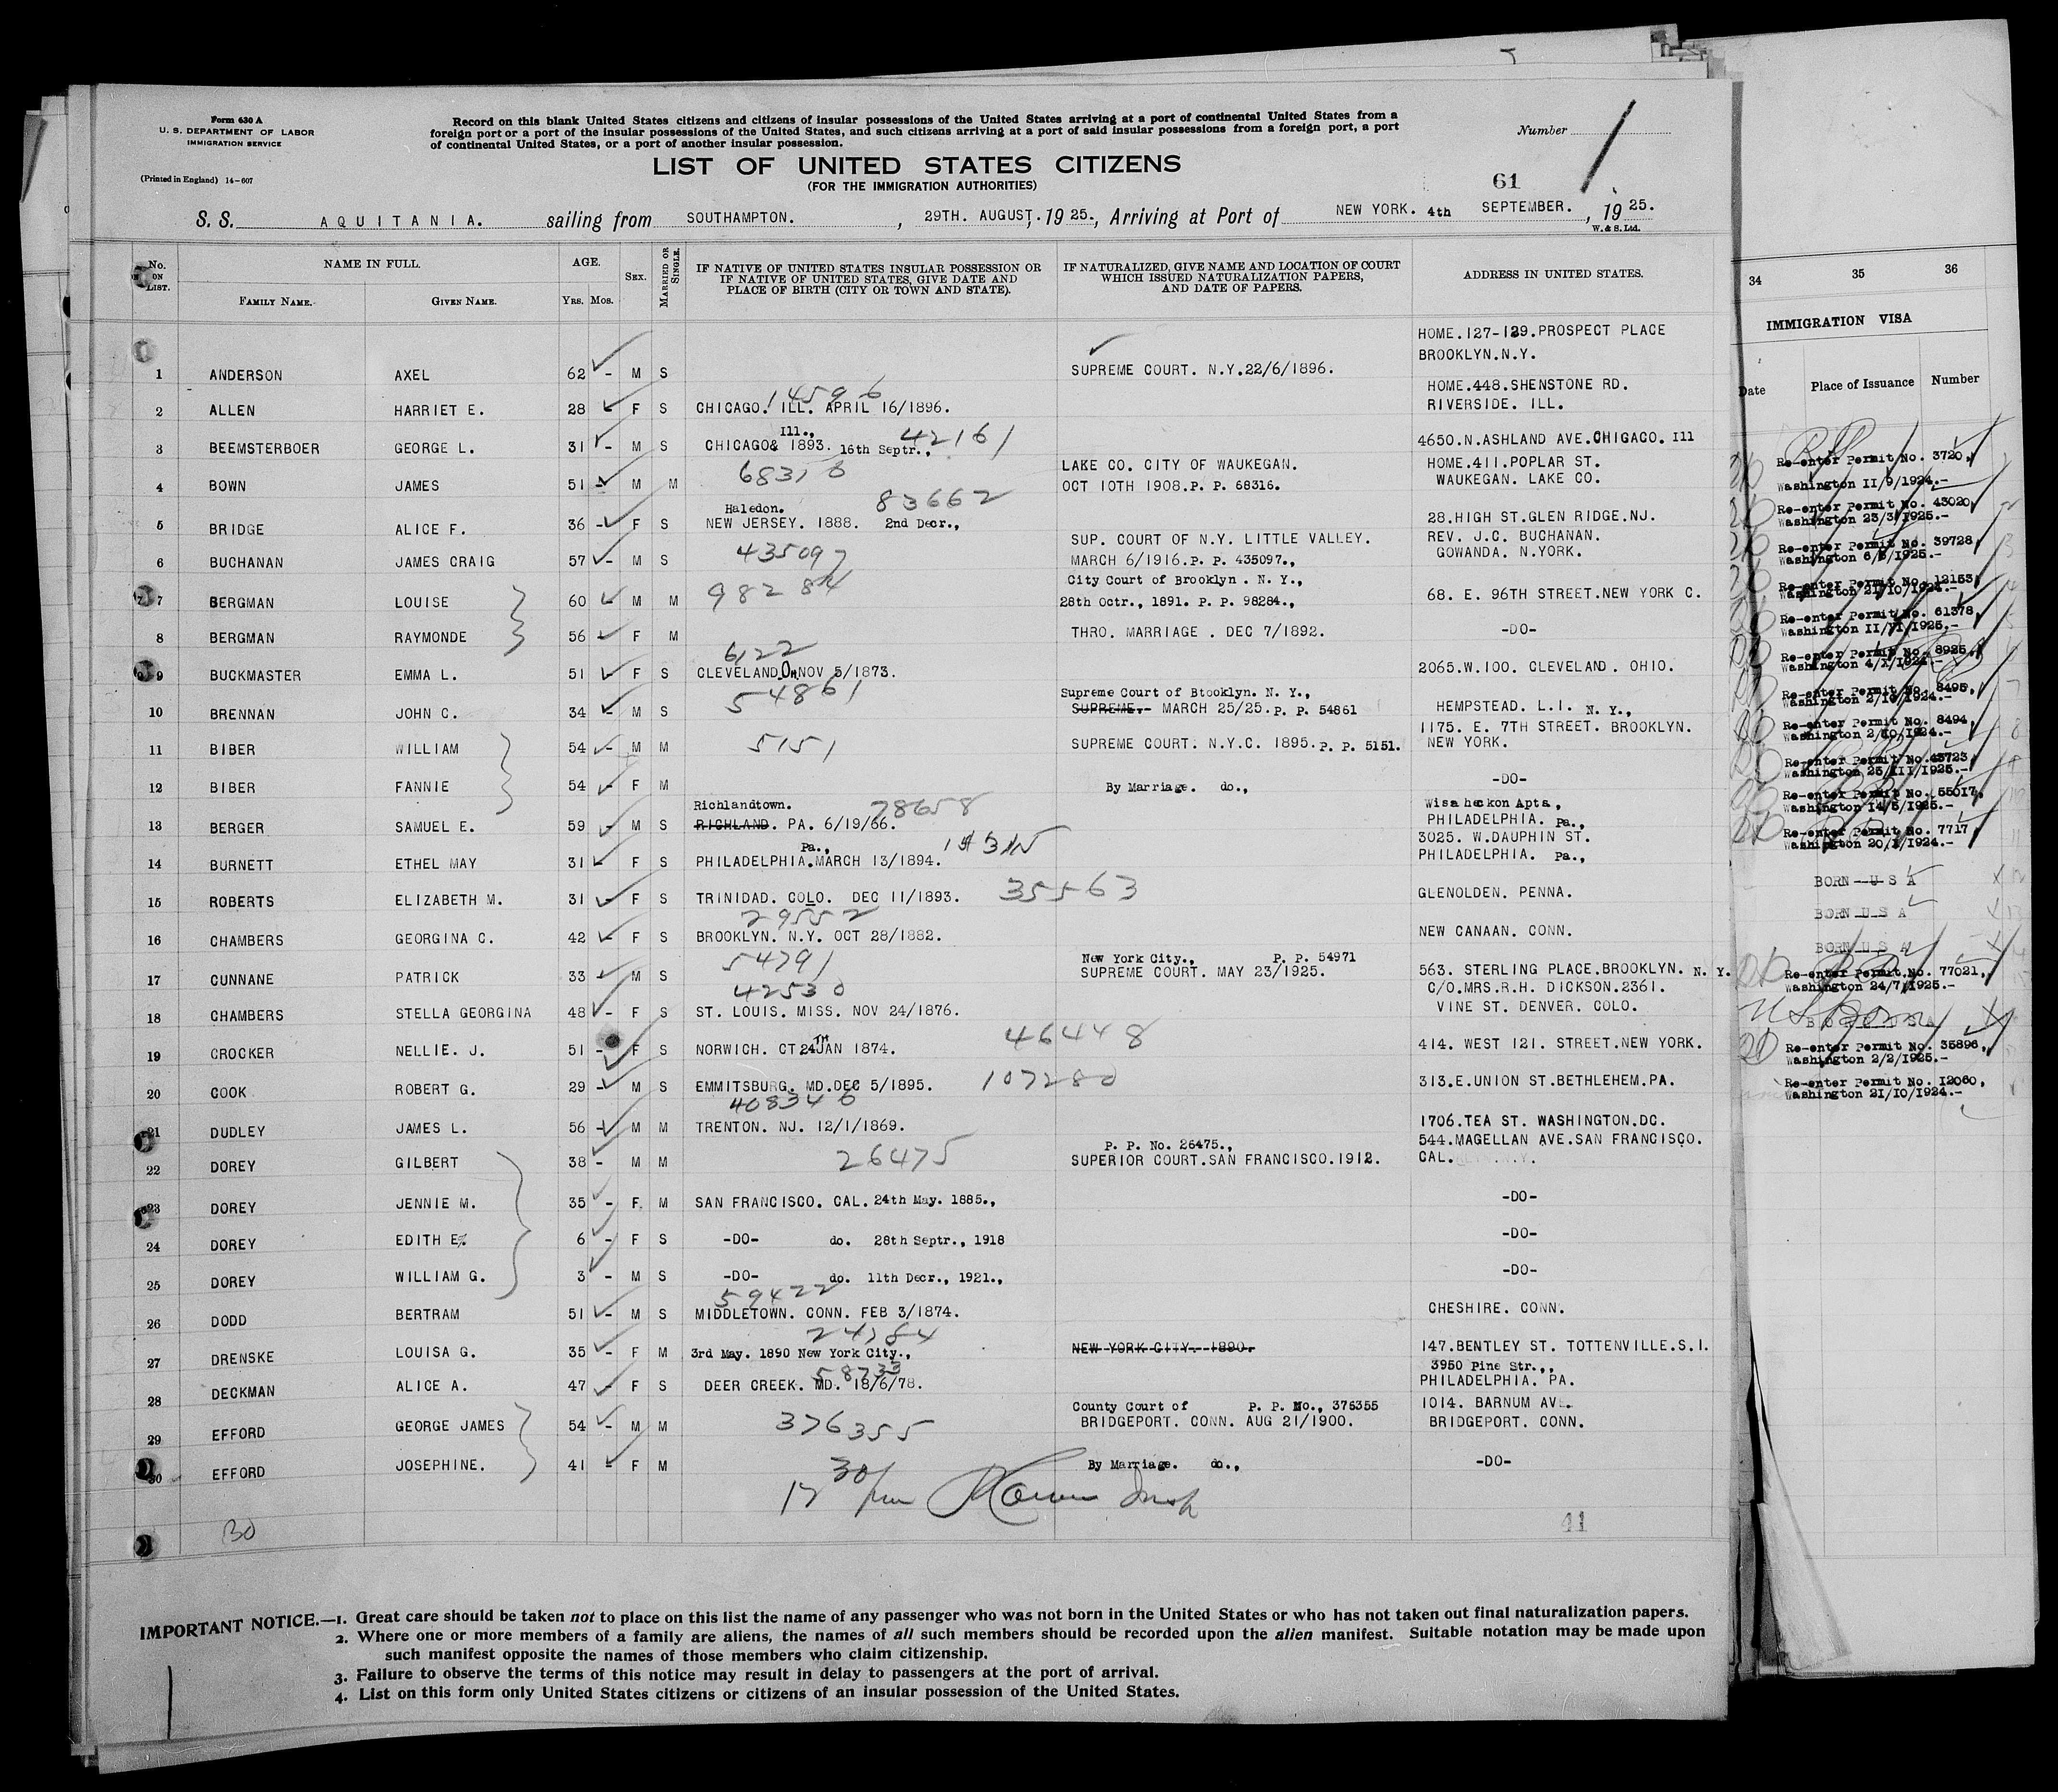 Form 630 A
U. S. DEPARTMENT OF LABOR
IMMIGRATION SERVICE
(Printed in England) 14-607
Record on this blank United States citizens and citizens of insular possessions of the United States arriving at a port of continental United States from a
foreign port or a port of the insular possessions of the United States, and such citizens arriving at a port of said insular possessions from a foreign port, a port
of continental United States, or a port of another insular possession.
Number
LIST OF UNITED STATES CITIZENS
(FOR THE IMMIGRATION AUTHORITIES)
61
S. S. AQUITANIA. sailing from SOUTHAMPTON. , 29TH. AUGUST, 1925., Arriving at Port of NEW YORK. 4th SEPTEMBER. , 1925.
W. & S. Ltd.
No. ON LIST. NAME IN FULL. AGE. SEX. MARRIED OR SINGLE. IF NATIVE OF UNITED STATES INSULAR POSSESSION OR IF NATIVE OF UNITED STATES, GIVE DATE AND PLACE OF BIRTH (CITY OR TOWN AND STATE). IF NATURALIZED, GIVE NAME AND LOCATION OF COURT WHICH ISSUED NATURALIZATION PAPERS, AND DATE OF PAPERS. ADDRESS IN UNITED STATES.
FAMILY NAME. GIVEN NAME. YRS. MOS.
HOME.127-129.PROSPECT PLACE
BROOKLYN.N.Y.
1 ANDERSON AXEL 62 - M S SUPREME COURT. N.Y.22/6/1896.
14596 HOME.448.SHENSTONE RD.
2 ALLEN HARRIET E. 28 - F S CHICAGO. ILL. APRIL 16/1896. RIVERSIDE. ILL.
Ill., 42161
3 BEEMSTERBOER GEORGE L. 31 - M S CHICAGO& 1893. 16th Septr., 4650.N.ASHLAND AVE.CHIGACO. Ill
68316 LAKE CO. CITY OF WAUKEGAN. HOME.411.POPLAR ST.
4 BOWN JAMES 51 - M M OCT 10TH 1908.P. P. 68316. WAUKEGAN. LAKE CO.
Haledon. 83662
5 BRIDGE ALICE F. 36 - F S NEW JERSEY. 1888. 2nd Decr., 28.HIGH ST.GLEN RIDGE.NJ.
435097 SUP. COURT OF N.Y. LITTLE VALLEY. REV. J.C. BUCHANAN.
6 BUCHANAN JAMES CRAIG 57 - M S MARCH 6/1916.P. P. 435097., GOWANDA. N.YORK.
98284 City Court of Brooklyn . N. Y.,
7 BERGMAN LOUISE 60 - M M 28th Octr., 1891. P. P. 98284., 68. E. 96TH STREET.NEW YORK C.
8 BERGMAN RAYMONDE 56 - F M THRO. MARRIAGE . DEC 7/1892. -DO-
6122
9 BUCKMASTER EMMA L. 51 - F S CLEVELAND.Oh.NOV 5/1873. 2065.W.100. CLEVELAND. OHIO.
54861 Supreme Court of Btooklyn. N. Y.,
10 BRENNAN JOHN C. 34 - M S SUPREME.- MARCH 25/25. P. P. 54861 HEMPSTEAD. L.I. N. Y.,
1175. E. 7TH STREET. BROOKLYN.
11 BIBER WILLIAM 54 - M M 5151 SUPREME COURT. N.Y.C. 1895. P. P. 5151. NEW YORK.
12 BIBER FANNIE 54 - F M By Marriage. do., -DO-
Richlandtown. 78658 Wisaheckon Apts,
13 BERGER SAMUEL E. 59 - M S RICHLAND. PA. 6/19/66. PHILADELPHIA. Pa.,
Pa., 3025. W.DAUPHIN ST.
14 BURNETT ETHEL MAY 31 - F S PHILADELPHIA.MARCH 13/1894. PHILADELPHIA. Pa.,
15 ROBERTS ELIZABETH M. 31 - F S TRINIDAD. COLO. DEC 11/1893. 35563 GLENOLDEN. PENNA.
29552
16 CHAMBERS GEORGINA C. 42 - F S BROOKLYN. N.Y. OCT 28/1882. NEW CANAAN. CONN.
54791 New York City., P. P. 54971
17 CUNNANE PATRICK 33 - M S SUPREME COURT. MAY 23/1925. 563. STERLING PLACE.BROOKLYN. N. Y.
42530 C/O.MRS.R.H. DICKSON.2361.
18 CHAMBERS STELLA GEORGINA 48 - F S ST. LOUIS. MISS. NOV 24/1876. VINE ST. DENVER. COLO.
46448
19 CROCKER NELLIE. J. 51 - F S NORWICH. CT 24TH JAN 1874. 414. WEST 121. STREET.NEW YORK.
20 COOK ROBERT G. 29 - M S EMMITSBURG. MD.DEC 5/1895. 107280 313.E.UNION ST.BETHLEHEM.PA.
408346
21 DUDLEY JAMES L. 56 - M M TRENTON. NJ. 12/1/1869. 1706.TEA ST. WASHINGTON.DC.
P. P. No. 26475., 544.MAGELLAN AVE.SAN FRANCISCO.
22 DOREY GILBERT 38 - M M 26475 SUPERIOR COURT.SAN FRANCISCO.1912. CAL.
23 DOREY JENNIE M. 35 - F M SAN FRANCISCO. CAL. 24th May. 1885., -DO-
24 DOREY EDITH E. 6 - F S -DO- do. 28th Septr., 1918 -DO-
25 DOREY WILLIAM G. 3 - M S -DO- do. 11th Decr., 1921., -DO-
59422
26 DODD BERTRAM 51 - M S MIDDLETOWN. CONN. FEB 3/1874. CHESHIRE. CONN.
24784
27 DRENSKE LOUISA G. 35 - F M 3rd May. 1890 New York City., NEW YORK CITY. 1890. 147.BENTLEY ST. TOTTENVILLE.S.I.
58733 3950 Pine Str.,,
28 DECKMAN ALICE A. 47 - F S DEER CREEK. MD. 18/6/78. PHILADELPHIA. PA.
County Court of P. P. No., 376355 1014. BARNUM AVE.
29 EFFORD GEORGE JAMES 54 - M M 376355 BRIDGEPORT. CONN. AUG 21/1900. BRIDGEPORT. CONN.
30 EFFORD JOSEPHINE. 41 - F M By Marriage. do., -DO-
30
17
30 41
IMPORTANT NOTICE.—1. Great care should be taken not to place on this list the name of any passenger who was not born in the United States or who has not taken out final naturalization papers.
2. Where one or more members of a family are aliens, the names of all such members should be recorded upon the alien manifest. Suitable notation may be made upon
such manifest opposite the names of those members who claim citizenship.
3. Failure to observe the terms of this notice may result in delay to passengers at the port of arrival.
4. List on this form only United States citizens or citizens of an insular possession of the United States.
34 35 36
IMMIGRATION VISA
Date Place of Issuance Number
Re-enter Permit No. 3720,
Washington II/9/1924.-
Re-enter Permit No. 43020,
Washington 23/3/1925.-
Re-enter Permit No. 39728,
Washington 6/3/1925.-
Re-enter Permit No. 12153,
Washington 21/10/1924.-
Re-enter Permit No. 61378,
Washington II/VI/1925.-
Re-enter Permit No. 8925,
Washington 4/X/1924.-
Re-enter Permit No. 8495,
Washington 2/10/1924.-
Re-enter Permit No. 8494,
Washington 2/10/1924.-
Re-enter Permit No. 43723
Washington 25/III/1925.-
Re-enter Permit No. 55017,
Washington 14/5/1925.-
Re-enter Permit No. 7717,
Washington 20/X/1924.-
BORN U S A
BORN U S A
BORN U S A
Re-enter Permit No. 77021,
Washington 24/7/1925.-
US Born
BORN USA
Re-enter Permit No. 35896,
Washington 2/2/1925.-
Re-enter Permit No. 12060,
Washington 21/10/1924.-